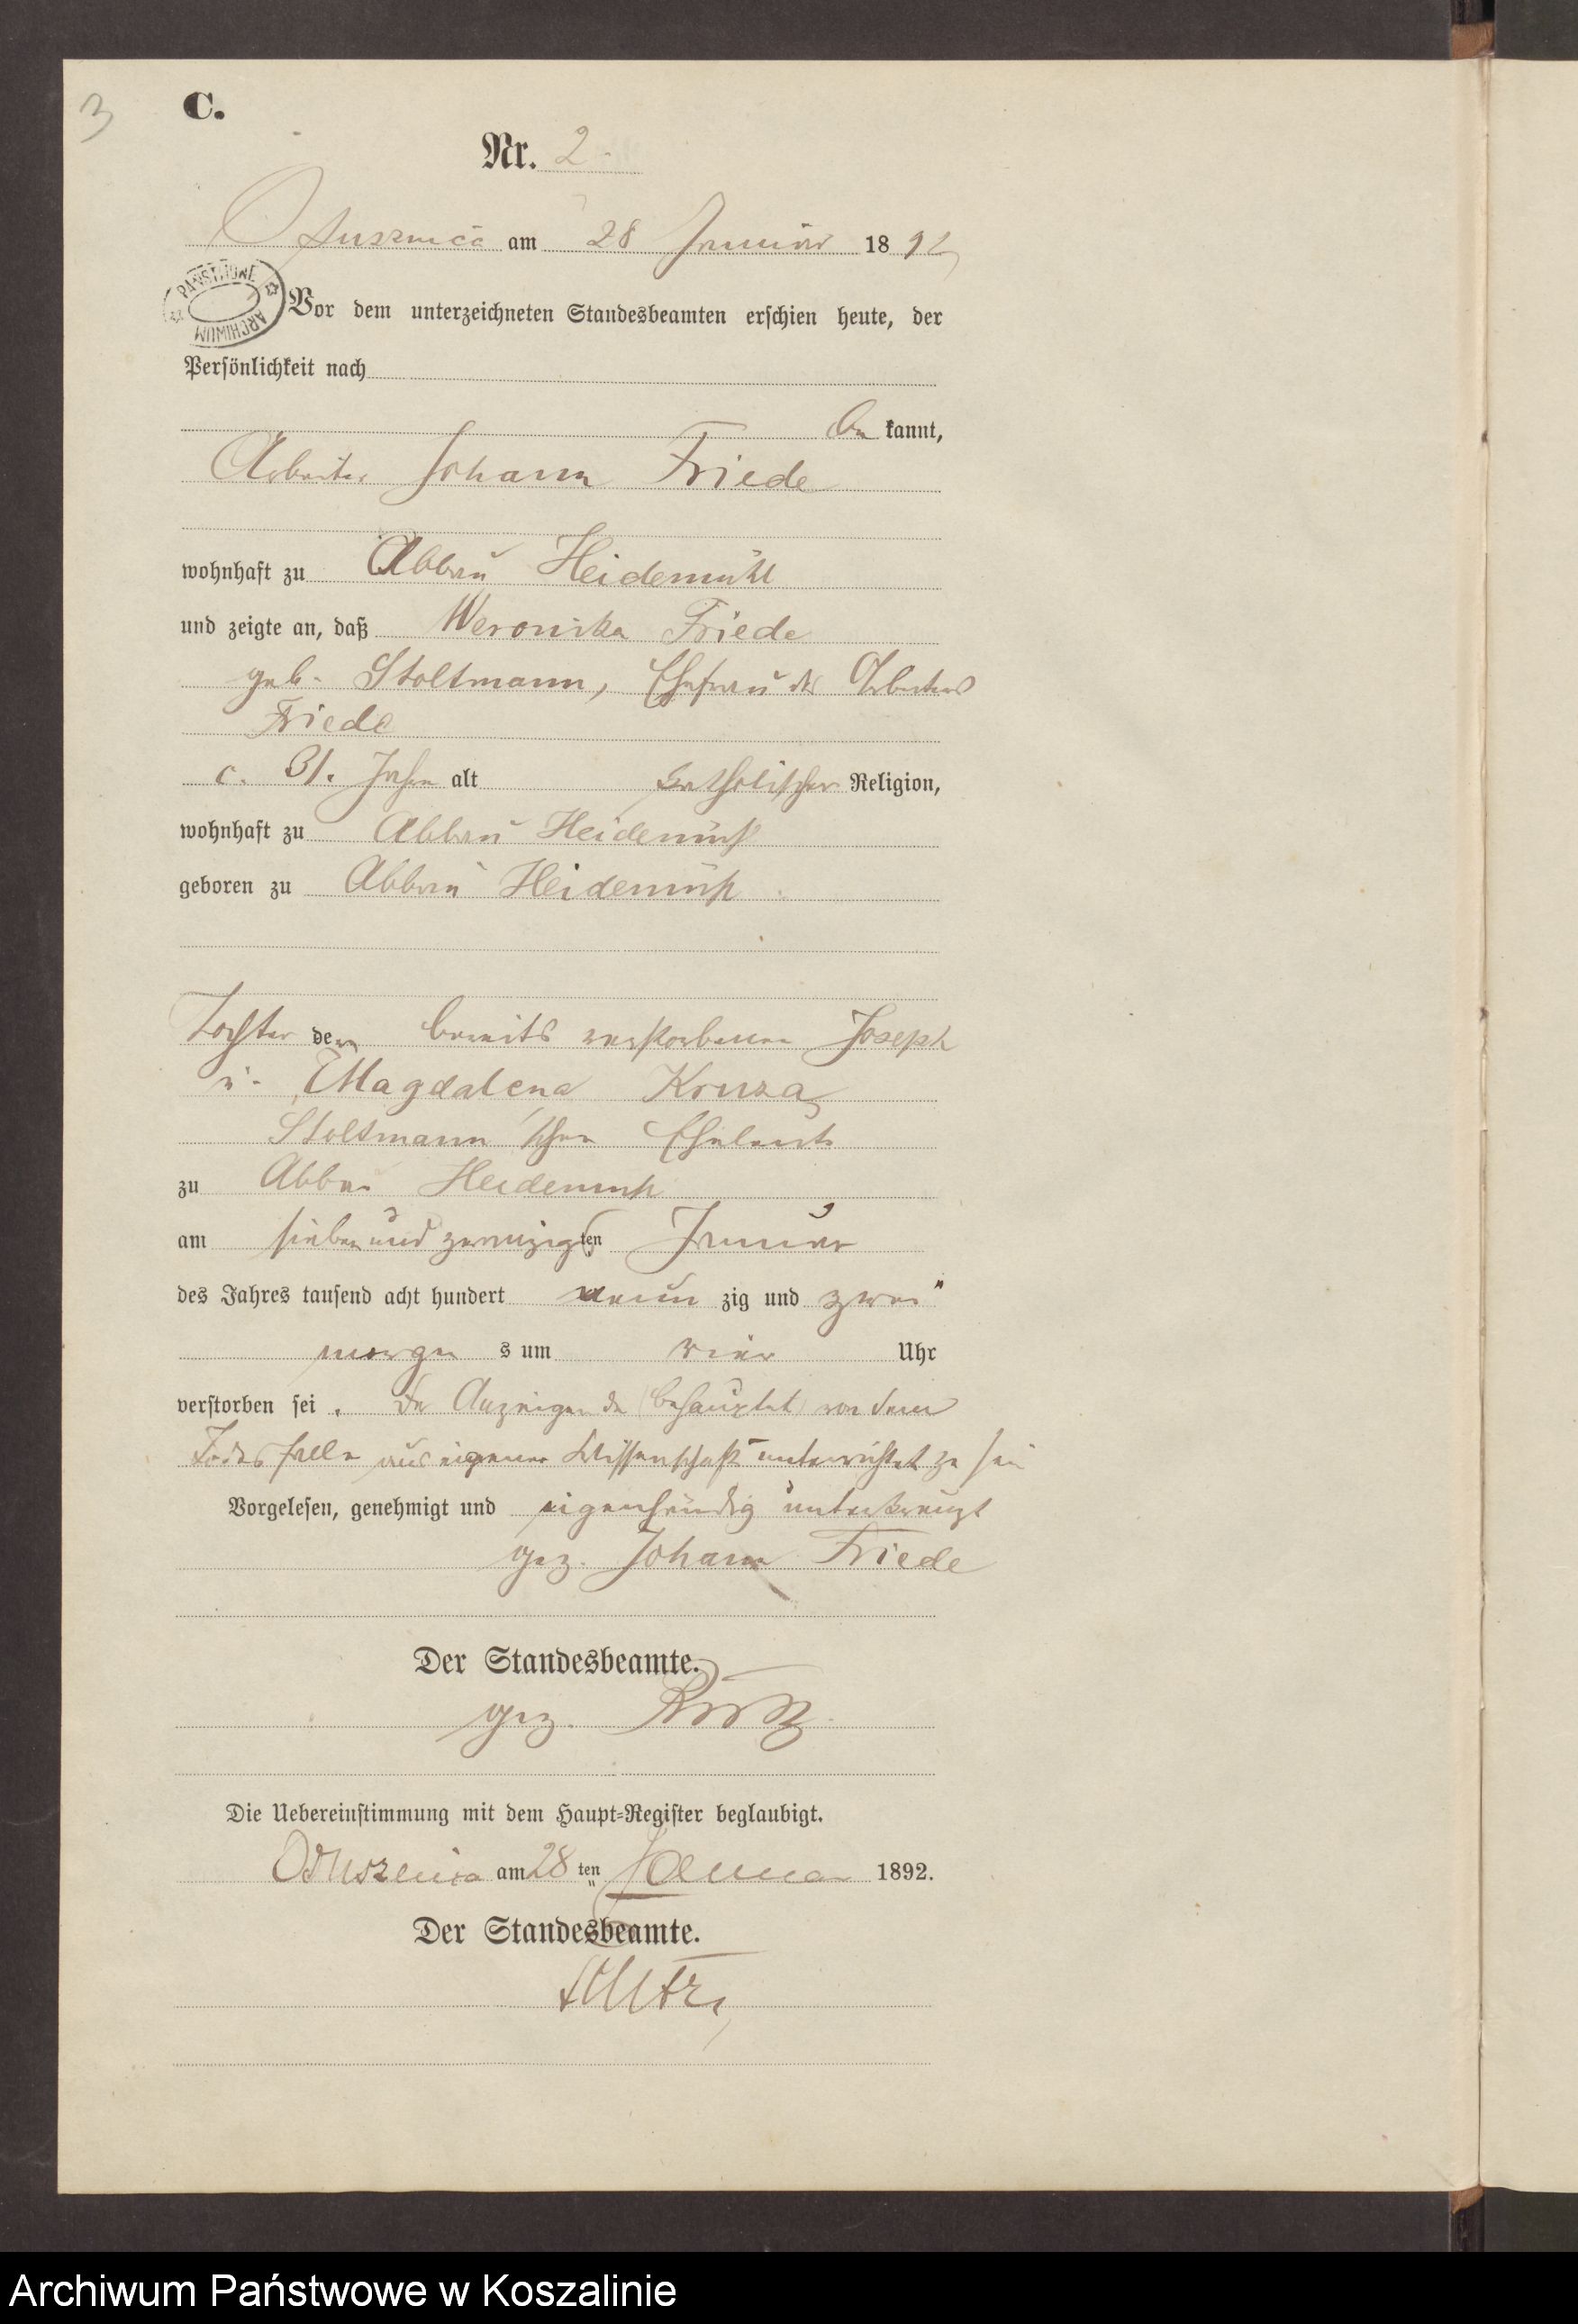 3
C.
Nr. 2.
am 28 Januar 1892
PAŃSTWOWE ARCHIWUM
Vor dem unterzeichneten Standesbeamten erschien heute, der
Persönlichkeit nach
be kannt,
Arbeiter Johann Friede
wohnhaft zu Abbau Heidemühl
und zeigte an, daß Weronika Friede
geb. Stoltmann, Ehefrau des Arbeiters
Friede
c. 31. Jahre alt katholischer Religion,
wohnhaft zu Abbau Heidemühl
geboren zu Abbau Heidemühl
Tochter der bereits verstorbenen Joseph
u. Magdalena Kruza
Stoltmann'schen Eheleute
zu Abbau Heidemühl
am sieben und zwanzigsten Januar
des Jahres tausend acht hundert neun zig und zwei
morgen s um vier Uhr
verstorben sei. Der Anzeigende behauptet von dem
Todesfalle aus eigener Wissenschaft unterrichtet zu sein
Vorgelesen, genehmigt und eigenhändig unterkreuzt
gez. Johann Friede
Der Standesbeamte.
gez.
Die Uebereinstimmung mit dem Haupt-Register beglaubigt.
am 28 ten Januar 1892.
Der Standesbeamte.
Archiwum Państwowe w Koszalinie